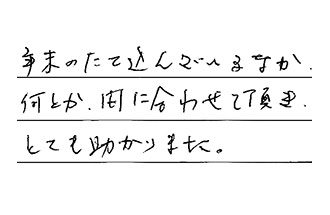 年末のたて込んでいるなか、
何とか、間に合わせて頂き、
とても助かりました。